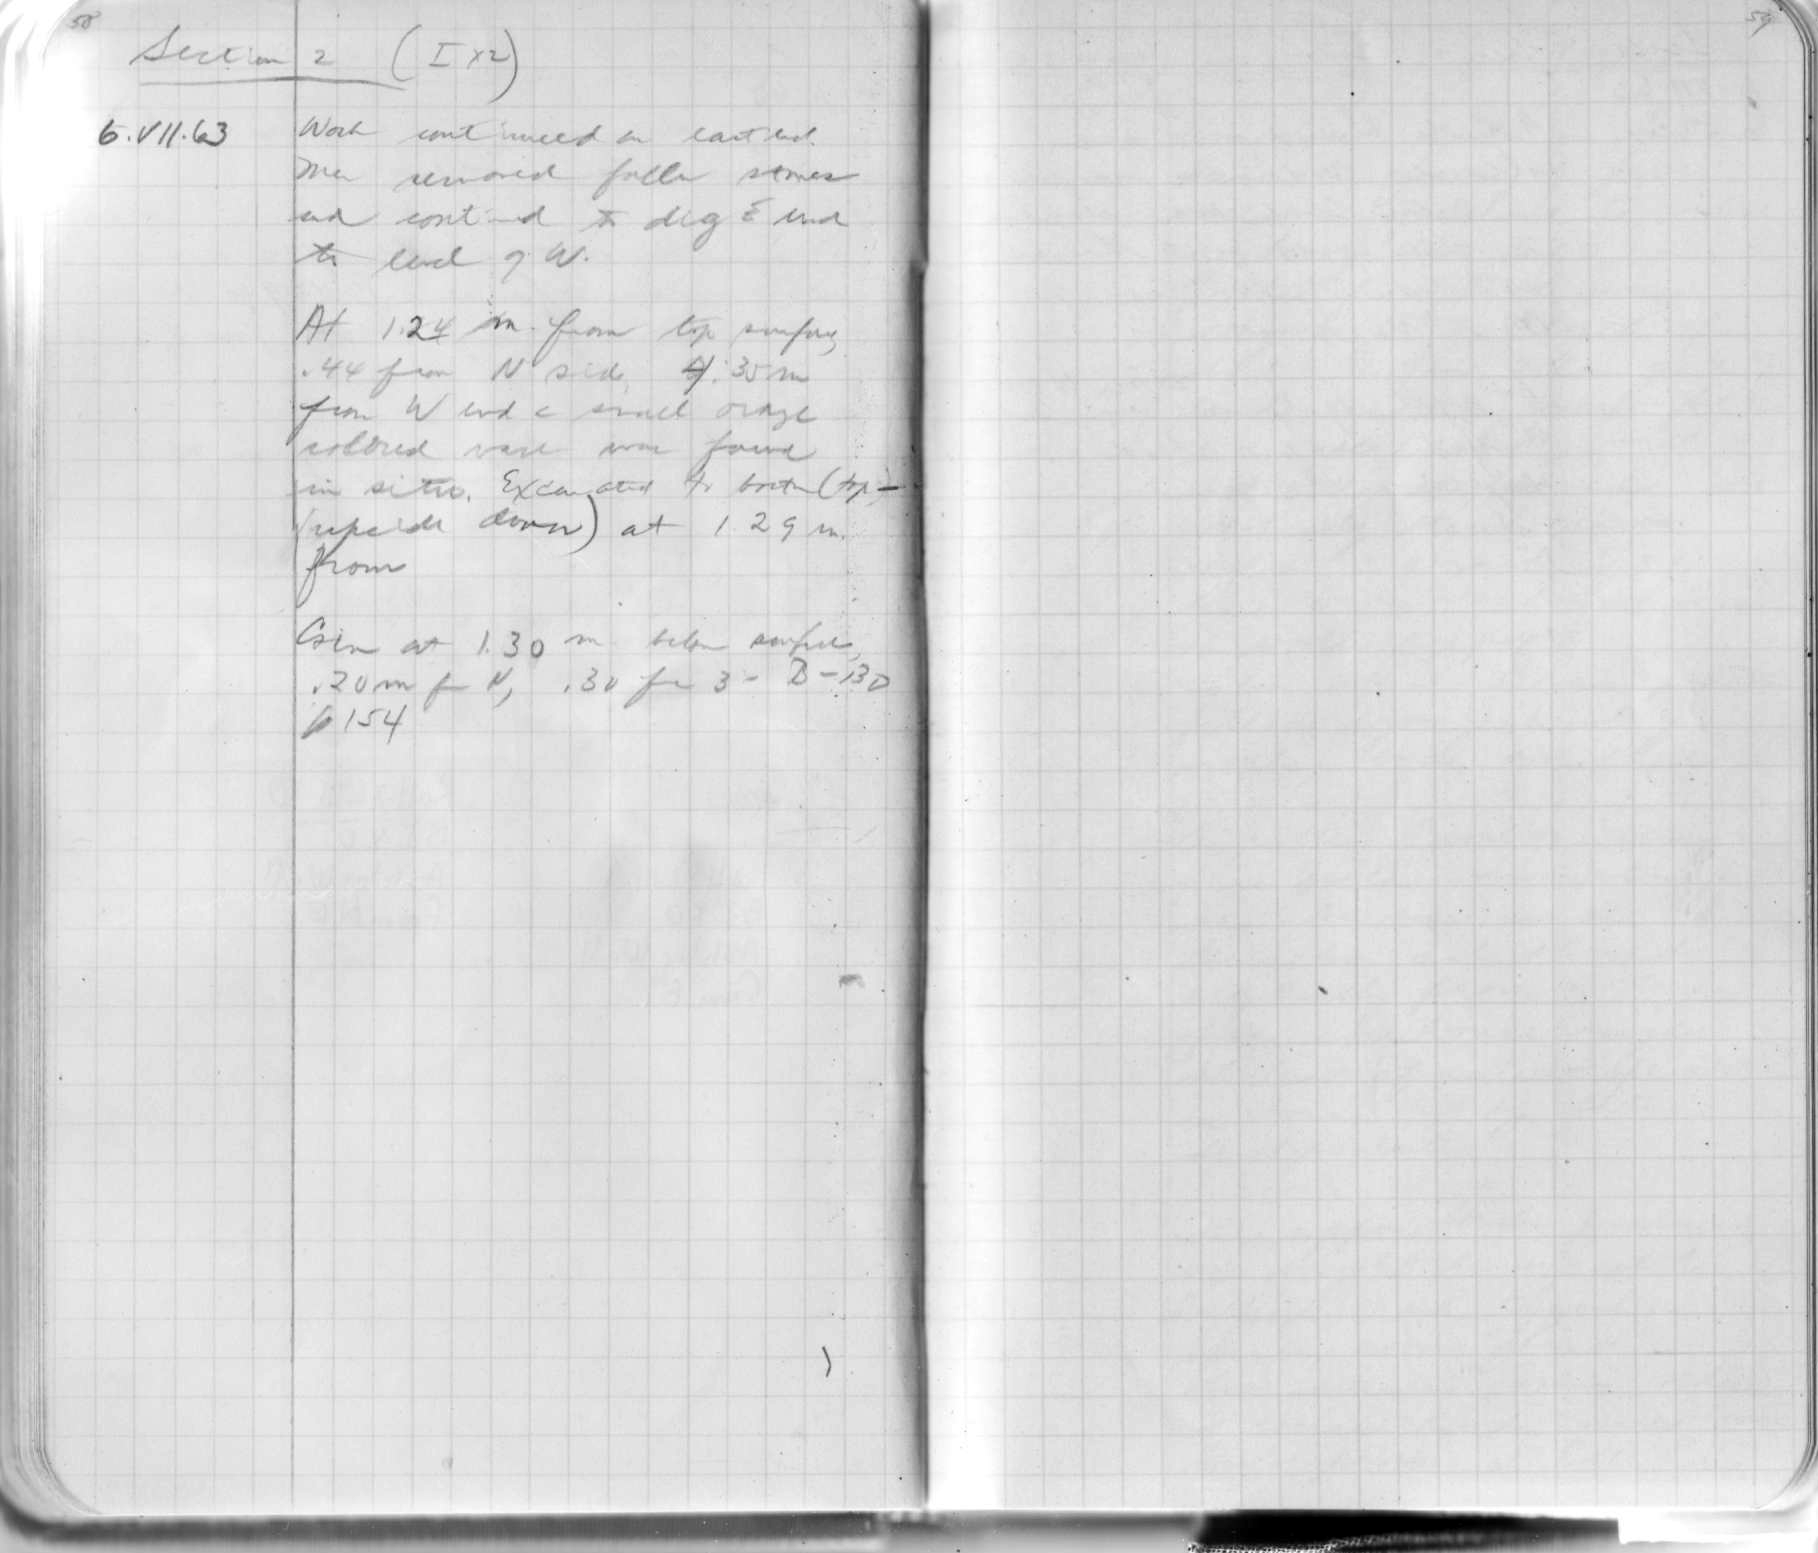 58
59
Section 2 (I x 2)
6.VII.63 Work continued on east end.
Men removed fallen stones
and continued to dig E end
to level of W.
At 1.24 m. from top surface,
.44 from N side, 4.35 m
from W end a small orange
colored vase was found
in situ. Excavated to bottom (top-
upside down) at 1.29 m.
from
Coin at 1.30 m below surface,
.20 m fr N, .30 fr
p 154